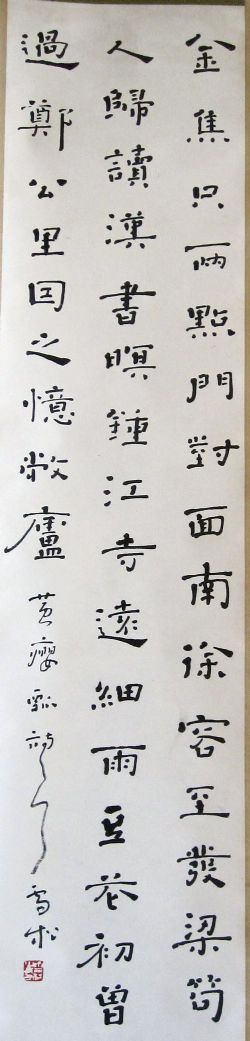 金焦只兩點門對面南徐客至發梁笱
人歸讀漢書暝鍾江寺遠細雨豆花初曾
過鄭公里因之憶敝廬 黃癭瓢詩 雪松